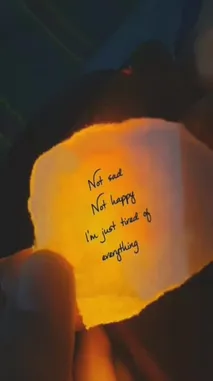 Not sad
Not happy
I'm just tired of
everything